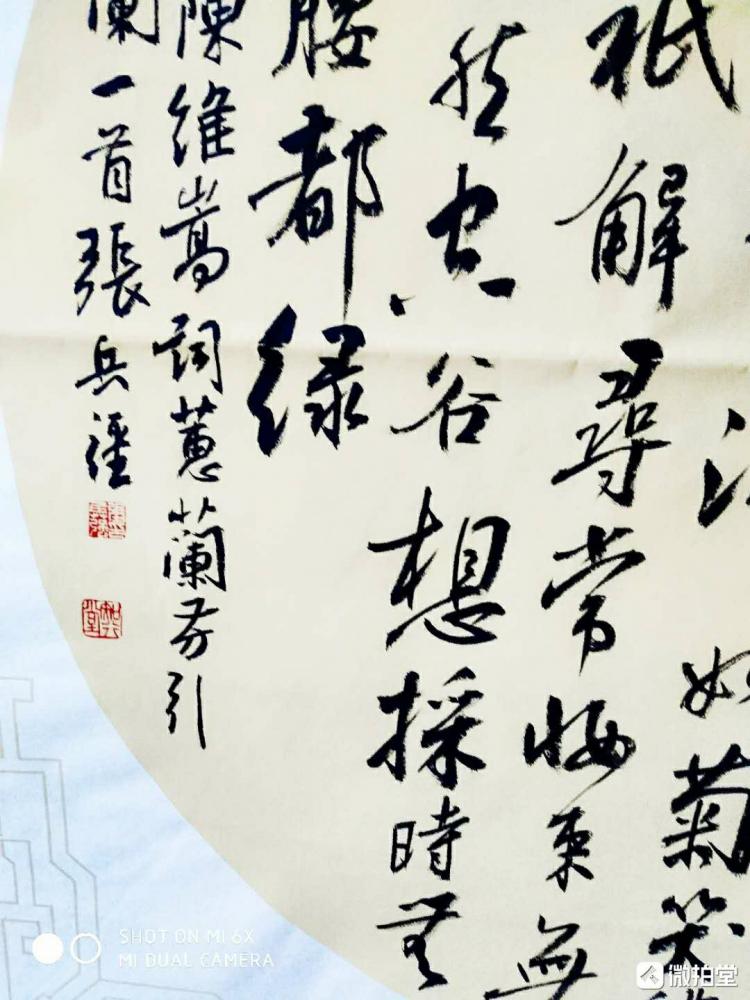 如菊笑
祇解尋常悔東無
然空谷想採時無
腰都綠
陳維嵩詞蕙蘭芬引
蘭一首張兵
SHOT ON MI 6X
MI DUAL CAMERA
微拍堂